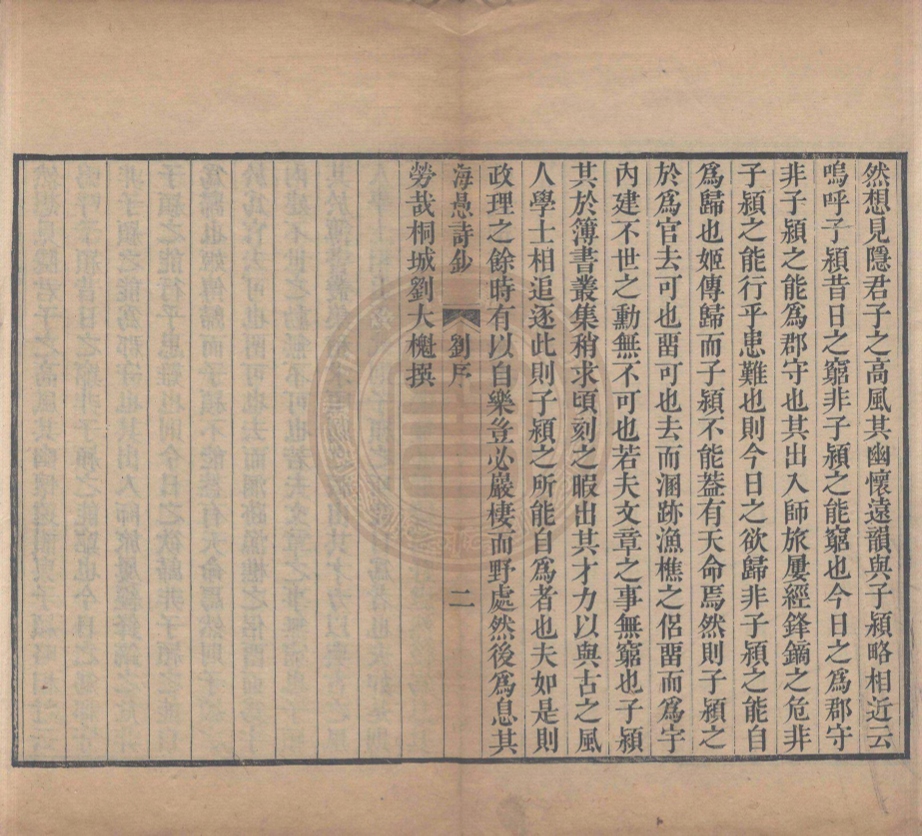 然想見隱君子之高風其幽懷遠韻與子潁略相近云
嗚呼子潁昔日之窮非子潁之能窮也今日之爲郡守
非子潁之能爲郡守也其出入師旅屢經鋒鏑之危非
子潁之能行乎患難也則今日之欲歸非子潁之能自
爲歸也姬傳歸而子潁不能葢有天命焉然則子潁之
於爲官去可也畱可也去而溷跡漁樵之侶畱而爲宇
內建不世之勳無不可也若夫文章之事無窮也子潁
其於簿書叢集稍求頃刻之暇出其才力以與古之風
人學士相追逐此則子潁之所能自爲者也夫如是則
政理之餘時有以自樂豈必巖棲而野處然後爲息其
海愚詩鈔 劉序 二
勞哉桐城劉大櫆撰